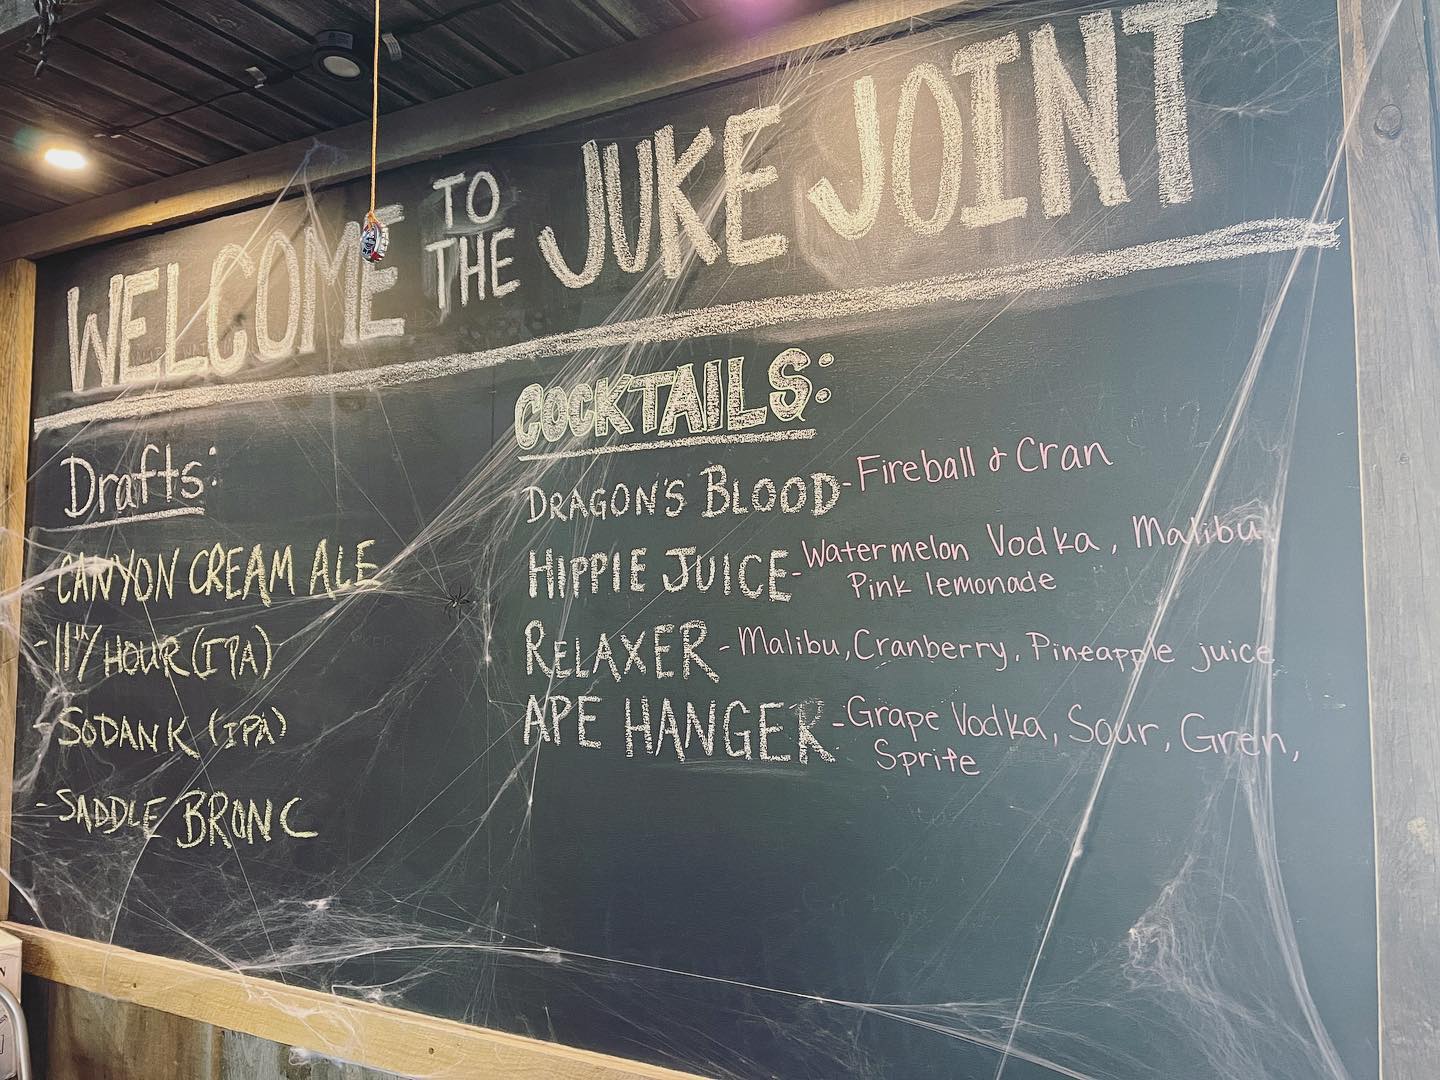 WELCOME TO THE JUKE JOINT
Drafts:
- CANYON CREAM ALE
- 11th HOUR (IPA)
- SODANK (IPA)
- SADDLE BRONC
COCKTAILS:
DRAGON'S BLOOD - Fireball & Cran
HIPPIE JUICE - Watermelon Vodka, Malibu,
Pink lemonade
RELAXER - Malibu, Cranberry, Pineapple juice
APE HANGER - Grape Vodka, Sour, Gren,
Sprite